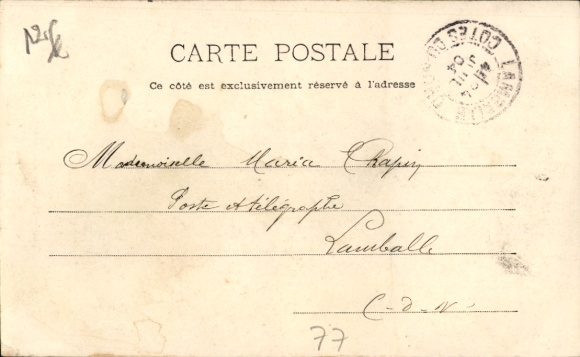 CARTE POSTALE
Ce côté est exclusivement réservé à l'adresse
LAMBALLE CÔTES DU NORD
Mademoiselle Maria Chapin
Poste et télégraphe
Lamballe
C-d-N.
77